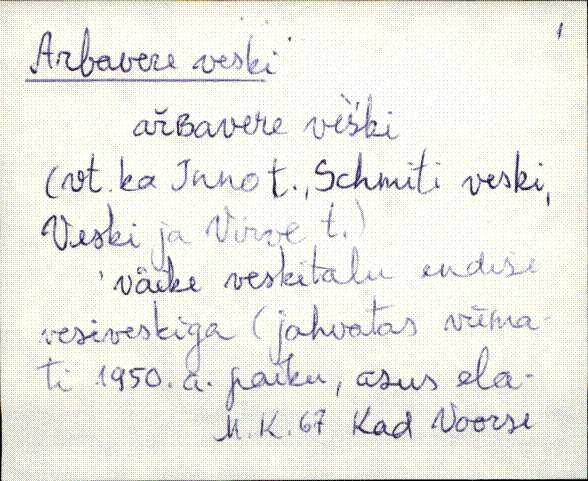 1
Arbavere veski
aržʙavere vèški
(vt. ka Inno t., Schmiti veski,
Veski ja Virve t.)
'väike veskitalu endise
vesiveskiga (jahvatas viima-
ti 1950. a. paiku, asus ela-
M.K. 67 Kad Voorse